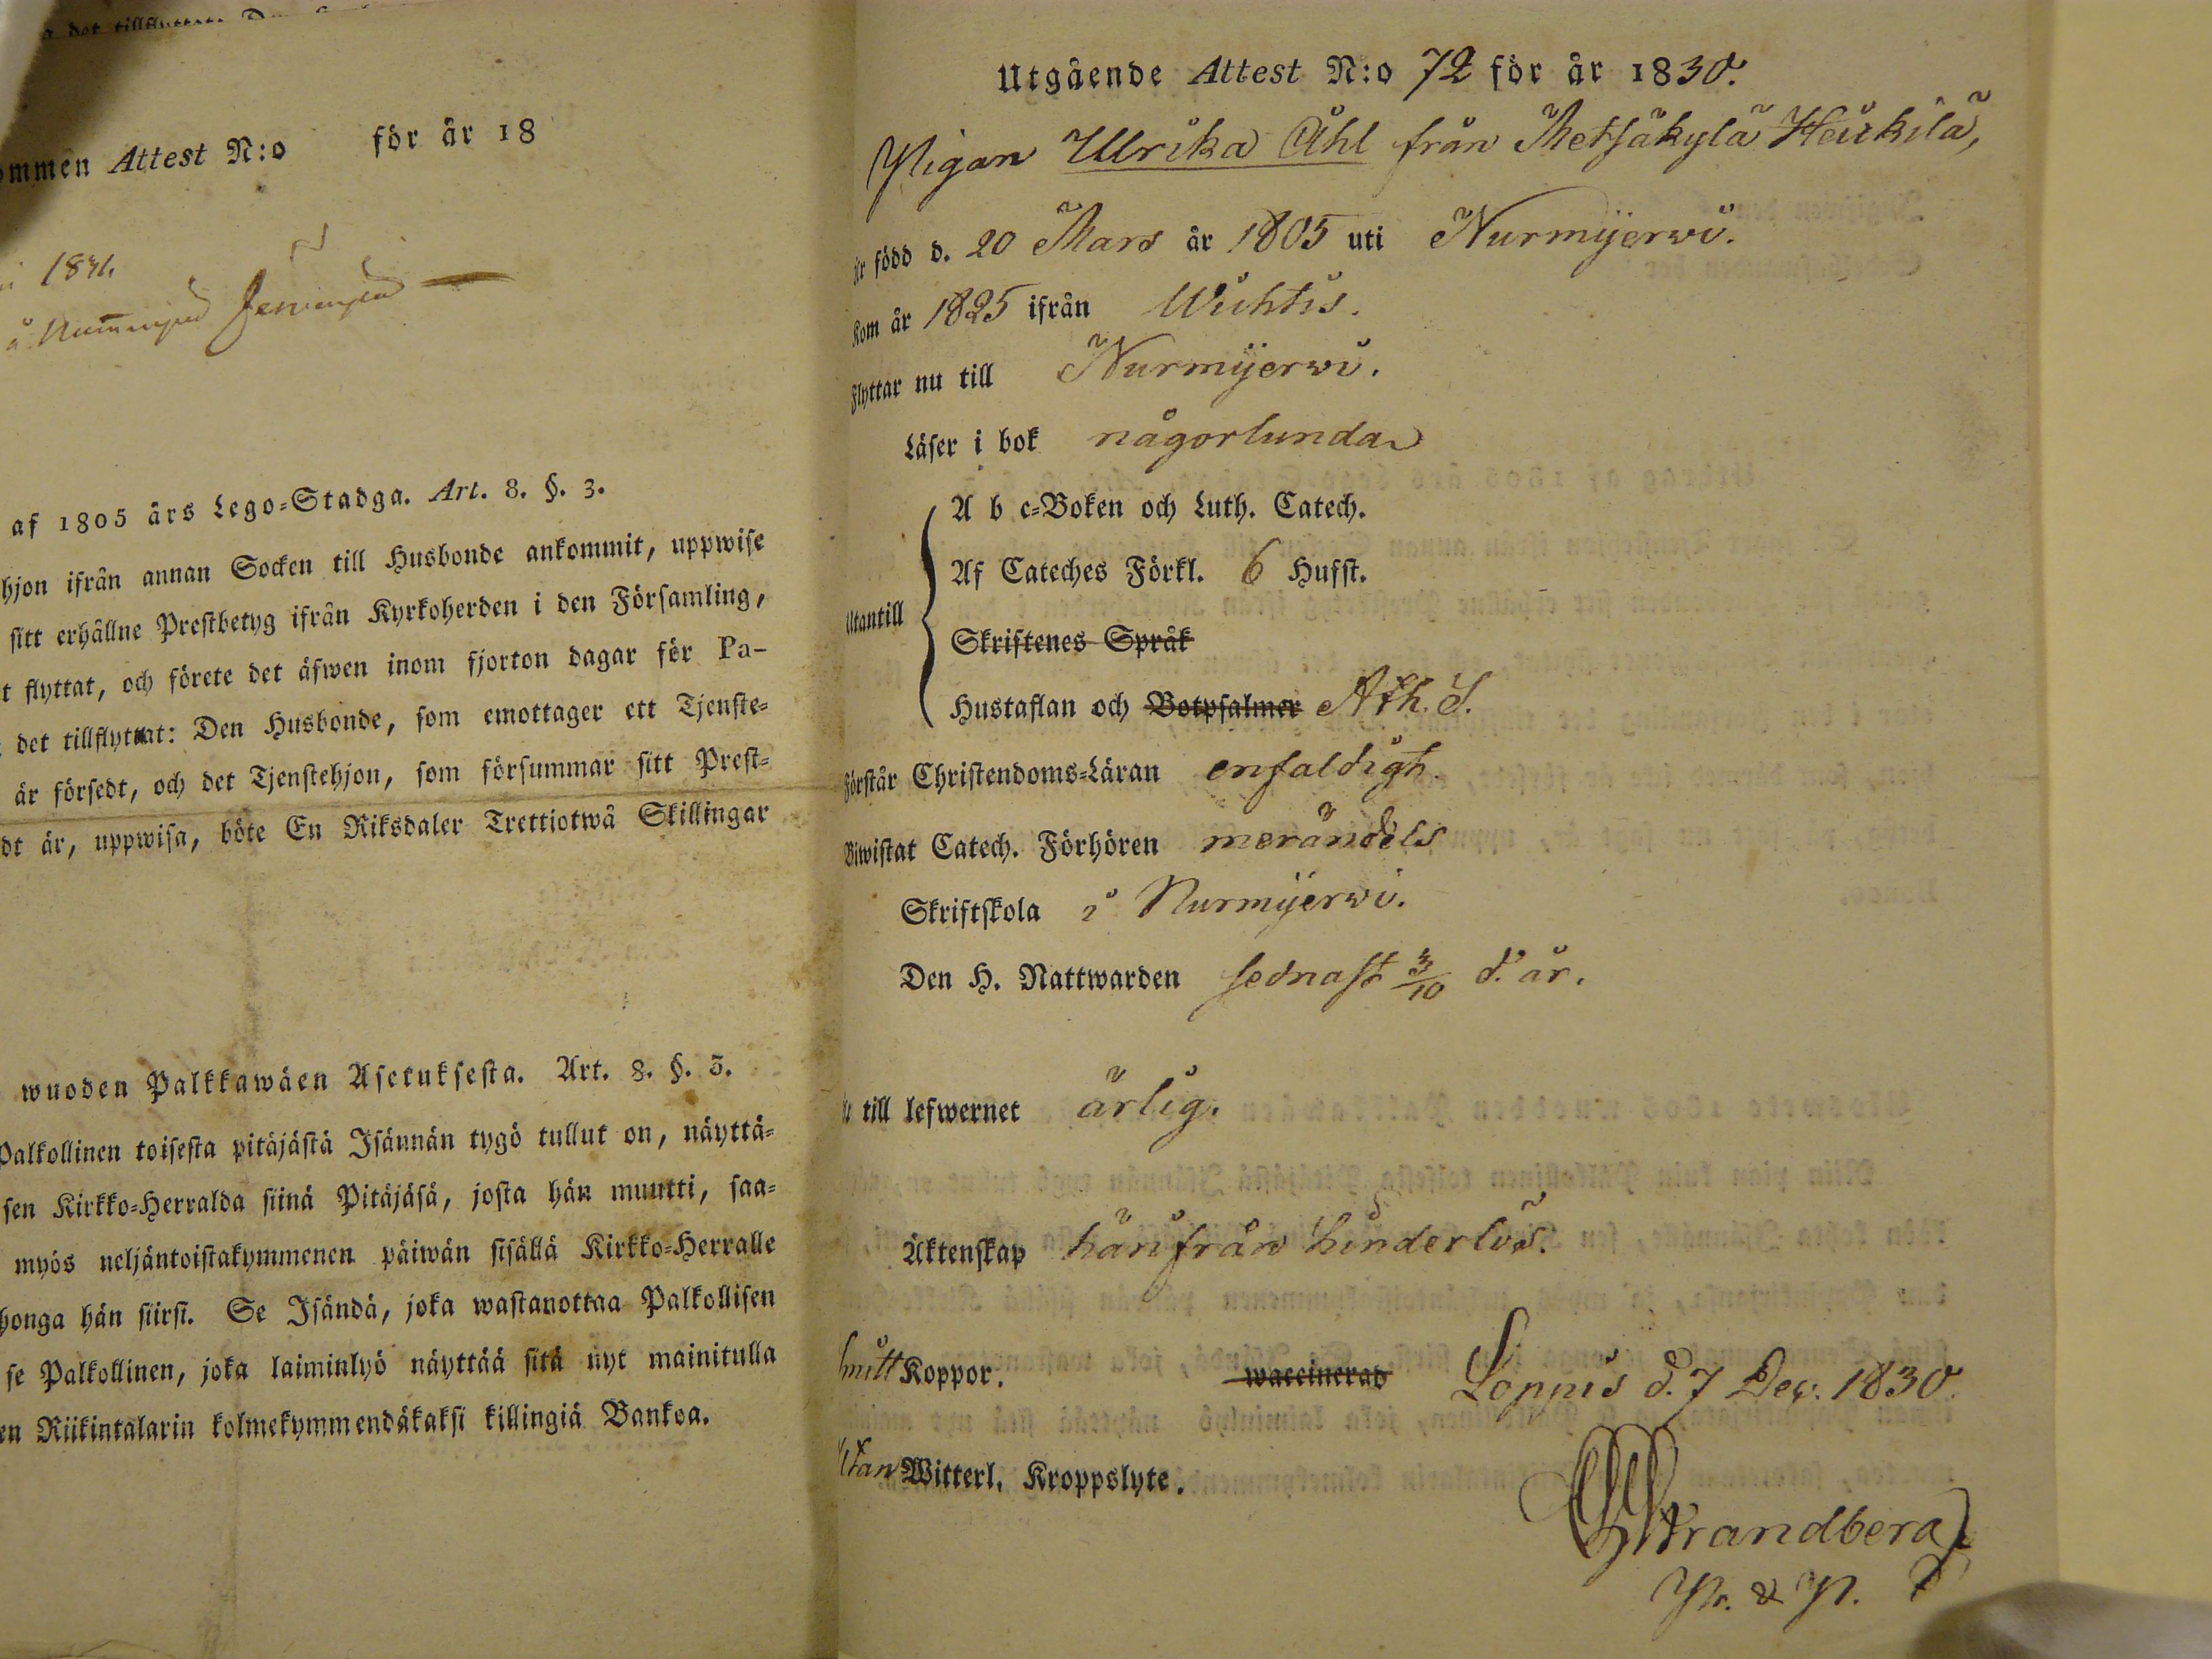 a det tillflyttat.
ommen Attest N:o för år 18
1831.
af 1805 års Lego-Stadga. Art. 8. §. 3.
hjon ifrån annan Socken till Husbonde ankommit, uppwise
sitt erhållne Prestbetyg ifrån Kyrkoherden i den Församling,
t flyttat, och förete det äfwen inom fjorton dagar för Pa-
det tillflyttat: Den Husbonde, som emottager ett Tjenste-
är försedt, och det Tjenstehjon, som försummar sitt Prest-
dt är, uppwisa, böte En Riksdaler Trettiotwå Skillingar
wuoden Palkkawäen Asetuksesta. Art. 8. §. 3.
Palkollinen toisesta pitäjästä Isännän tygö tullut on, näyttä-
sen Kirkko-Herralda siinä Pitäjäsä, josta hän muutti, saa-
myös neljäntoistakymmenen päiwän sisällä Kirkko-Herralle
honga hän siirsi. Se Isändä, joka wastanottaa Palkollisen
se Palkollinen, joka laiminlyö näyttää sitä nyt mainitulla
en Riikintalarin kolmekymmendäkaksi killingiä Bankoa.
Utgående Attest N:o 72 för år 1830.
Pigan Ulrika Åhl från Metsäkylä Heikilä,
är född d. 20 Mars år 1805 uti Nurmijerwi.
Kom år 1825 ifrån Wichtis.
Flyttar nu till Nurmijerwi.
Läser i bok någorlunda
A b c-Boken och Luth. Catech.
Af Cateches Förkl. 6 Hufst.
Utantill
Skriftenes Språk
Hustaflan och Botpsalmer Ath. S.
Förstår Christendoms-Läran enfaldigt.
Biwistat Catech. Förhören merändels
Skriftskola i Nurmijerwi.
Den H. Nattwarden sednast 3/10 d. år.
till lefwernet ärlig.
Äktenskap härifrån hinderlös.
haft Koppor. waccinerad Loppis d. 7 Dec. 1830.
Utan Witterl. Kroppslyte.
Strandberg
Pr. & P.